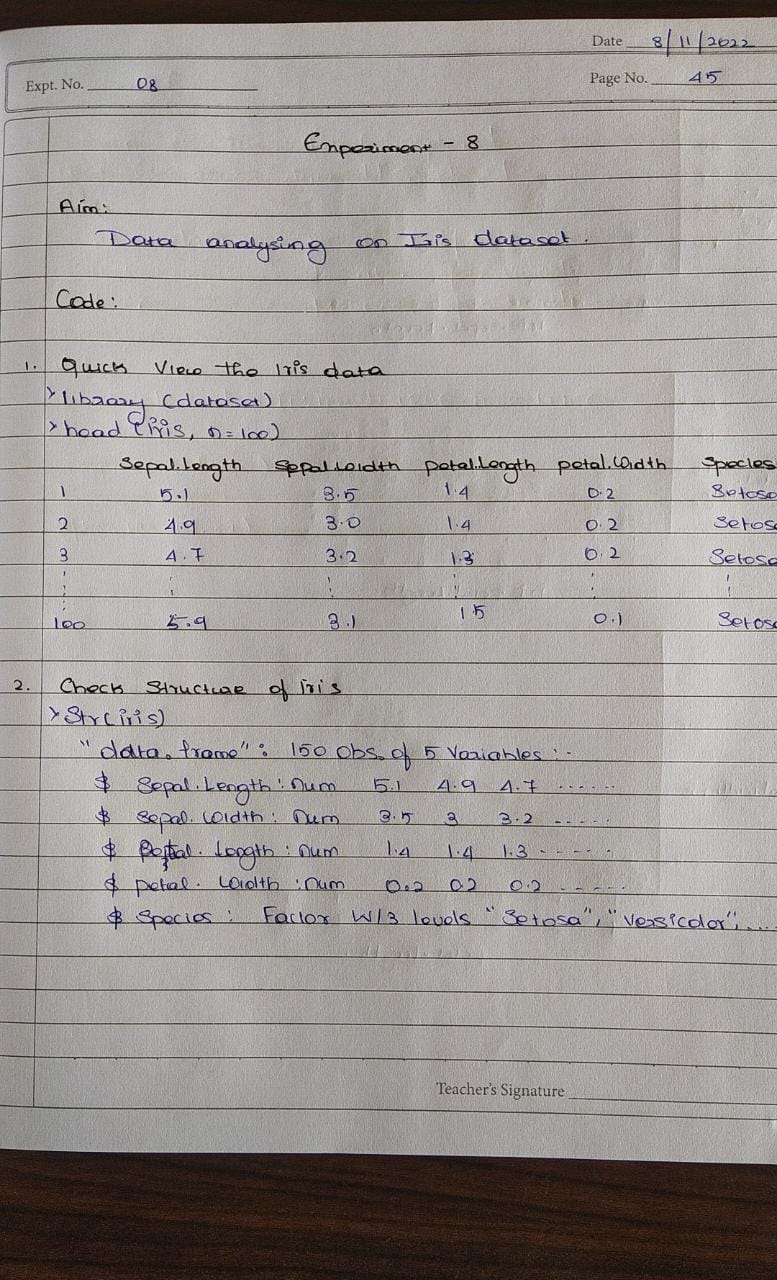 Date 8/11/2022
Expt. No. 08
Page No. 45
Experiment - 8
Aim:
Data analysing on Iris dataset.
Code:
1. Quick View the Iris data
> library (dataset)
> head (iris, n=100)
Sepal.Length Sepal.width petal.Length petal.Width Species
1 5.1 3.5 1.4 0.2 Setosa
2 4.9 3.0 1.4 0.2 Setos
3 4.7 3.2 1.3 0.2 Setosa
100 5.9 3.1 15 0.1 Setos
2. Check Structure of iris
> Str(iris)
"data.frame": 150 obs. of 5 Variables :-
$ Sepal.Length : num 5.1 4.9 4.7 ......
$ Sepal.Width : num 3.5 3 3.2 .....
$ Petal.Length : num 1.4 1.4 1.3 .....
$ petal.Width : num 0.2 0.2 0.2 .....
$ Species : Factor W/3 levels "Setosa", "Versicolor", ...
Teacher's Signature